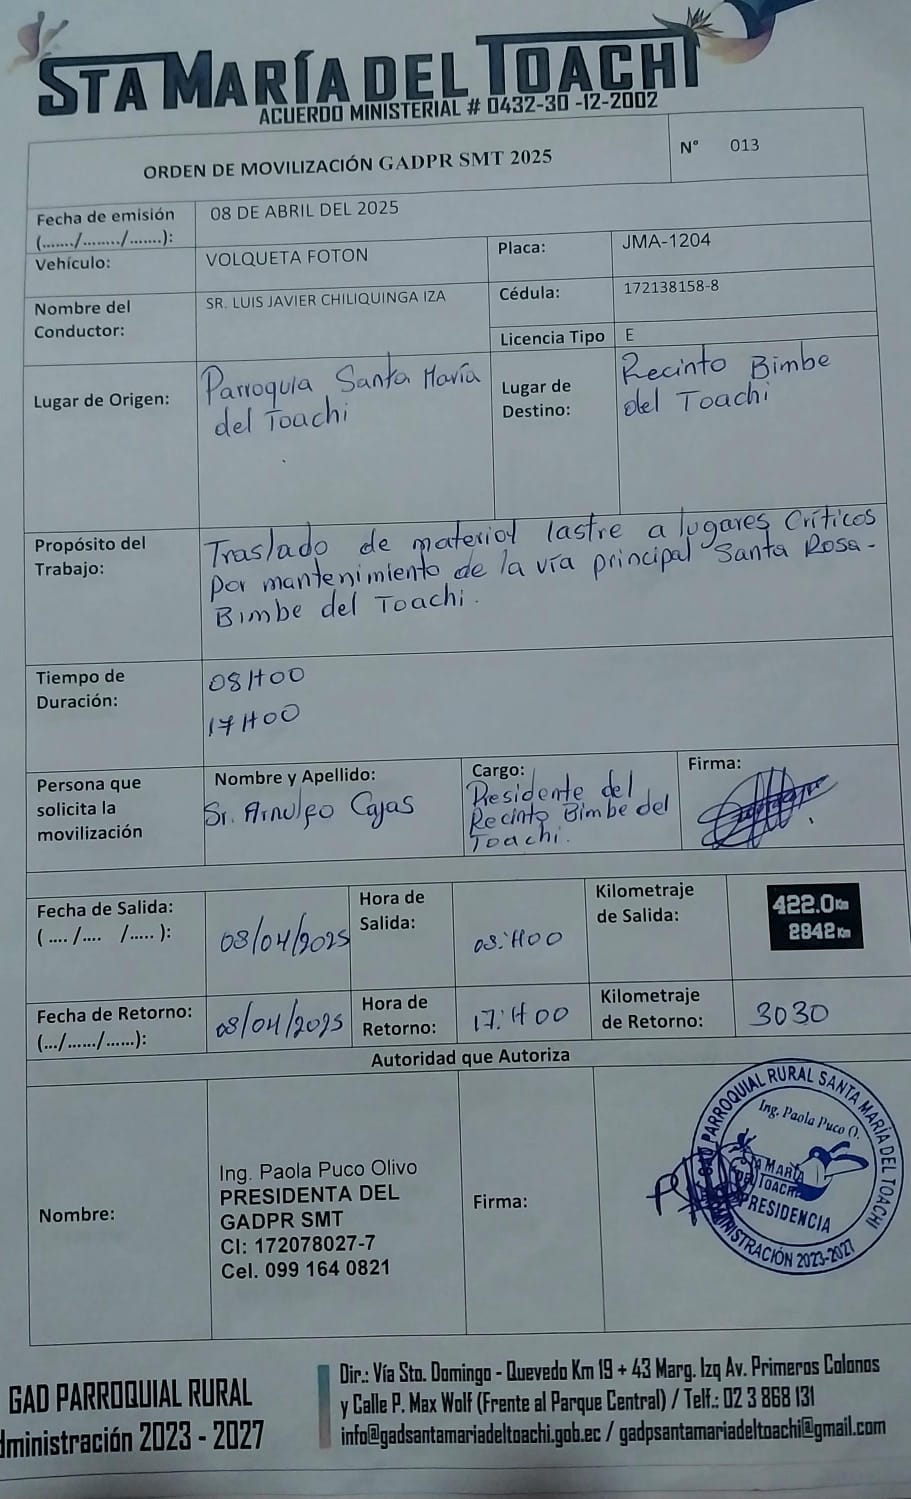 STA MARÍA DEL TOACHI
ACUERDO MINISTERIAL # 0432-30 -12-2002
ORDEN DE MOVILIZACIÓN GADPR SMT 2025
N° 013
Fecha de emisión
(......./......../.......):
08 DE ABRIL DEL 2025
Vehículo:
VOLQUETA FOTON
Placa:
JMA-1204
Nombre del
Conductor:
SR. LUIS JAVIER CHILIQUINGA IZA
Cédula:
172138158-8
Licencia Tipo
E
Lugar de Origen:
Parroquia Santa María
del Toachi
Lugar de
Destino:
Recinto Bimbe
del Toachi
Propósito del
Trabajo:
Traslado de material lastre a lugares Críticos
por mantenimiento de la vía principal Santa Rosa-
Bimbe del Toachi.
Tiempo de
Duración:
08H00
17H00
Persona que
solicita la
movilización
Nombre y Apellido:
Sr. Arnulfo Cajas
Cargo:
Presidente del
Recinto Bimbe del
Toachi.
Firma:
Fecha de Salida:
( .... /.... /..... ):
08/04/2025
Hora de
Salida:
08:H00
Kilometraje
de Salida:
422.0Km
2842Km
Fecha de Retorno:
(.../....../......):
08/04/2025
Hora de
Retorno:
17:H00
Kilometraje
de Retorno:
3030
Autoridad que Autoriza
Nombre:
Ing. Paola Puco Olivo
PRESIDENTA DEL
GADPR SMT
CI: 172078027-7
Cel. 099 164 0821
Firma:
GAD PARROQUIAL RURAL SANTA MARÍA DEL TOACHI
Ing. Paola Puco O.
STA MARÍA
DEL TOACHI
PRESIDENCIA
MINISTRACIÓN 2023-2027
GAD PARROQUIAL RURAL
dministración 2023 - 2027
Dir.: Vía Sto. Domingo - Quevedo Km 19 + 43 Marg. Izq Av. Primeros Colonos
y Calle P. Max Wolf (Frente al Parque Central) / Telf.: 02 3 868 131
info@gadsantamariadeltoachi.gob.ec / gadpsantamariadeltoachi@gmail.com